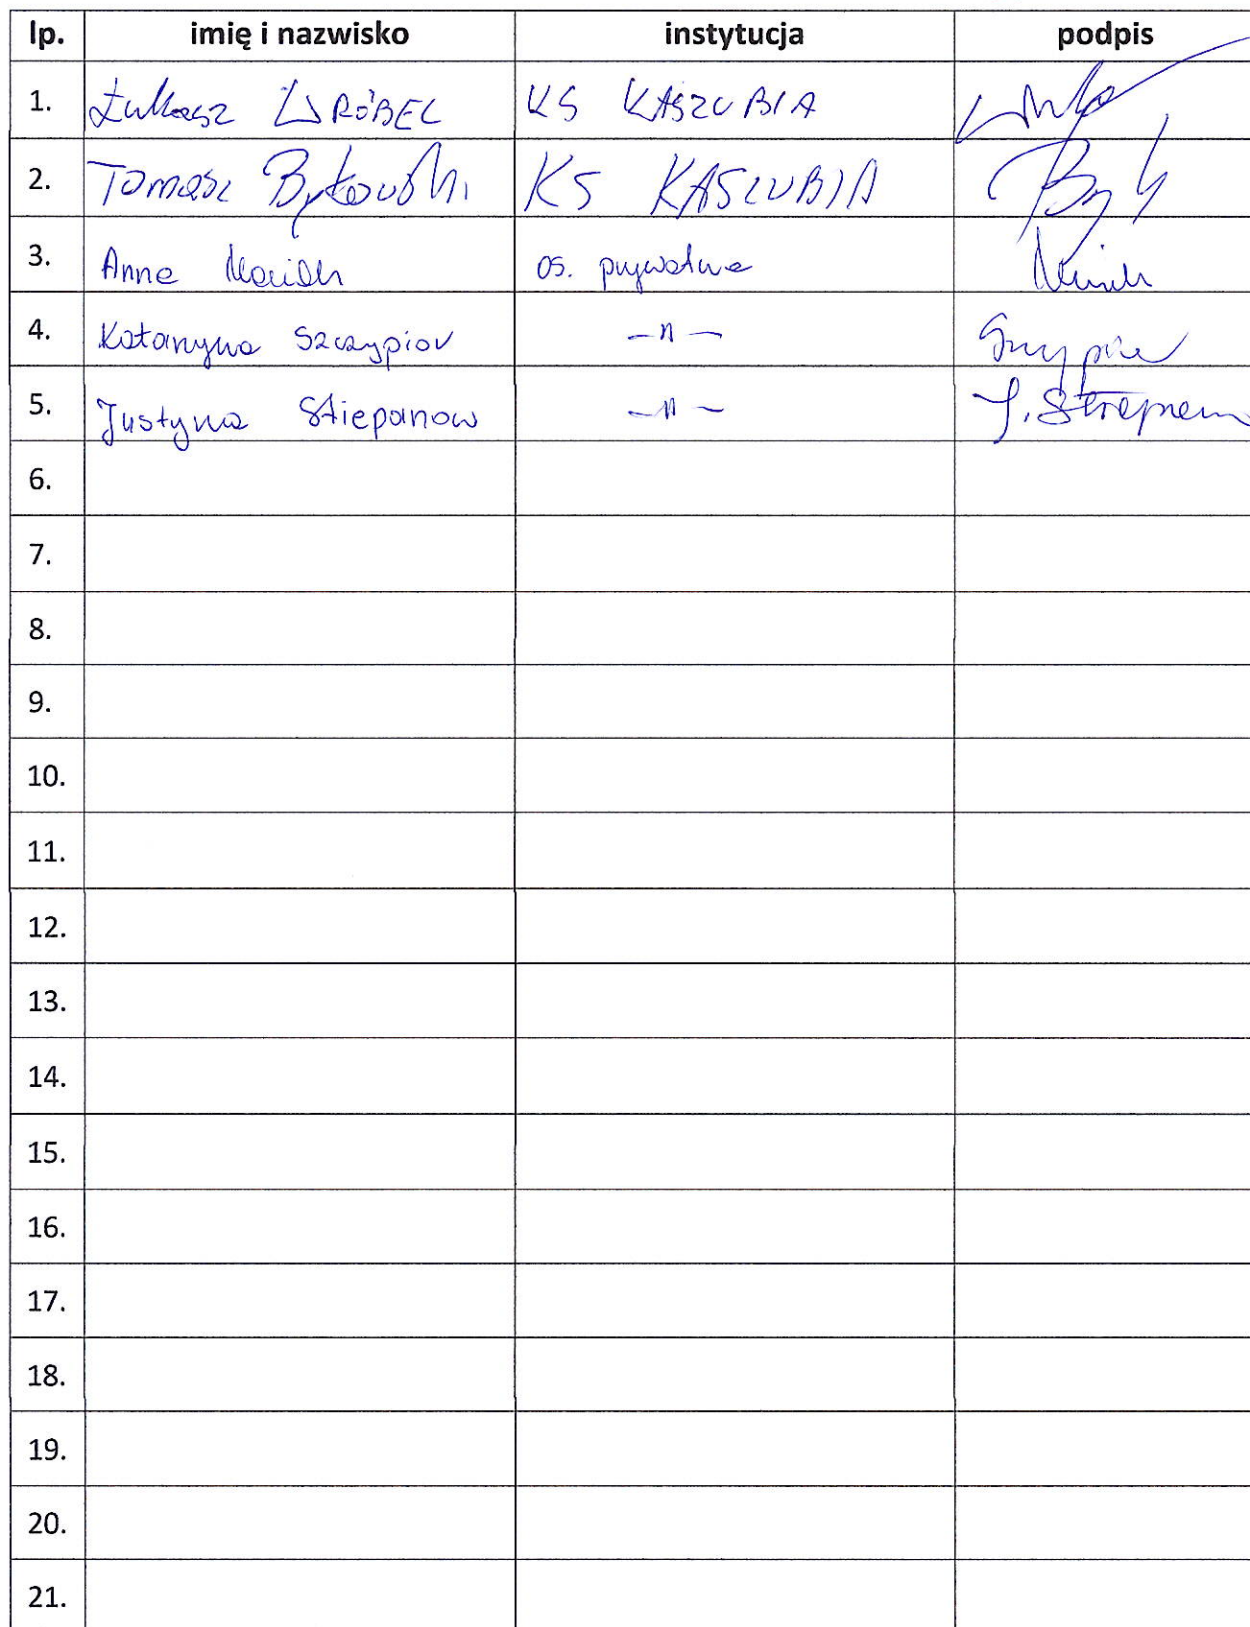 lp. imię i nazwisko instytucja podpis
1. Łukasz WRÓBEL KS KASZUBIA
2. Tomasz Bykowski KS KASZUBIA
3. Anna os. prywatna
4. Katarzyna Szczypior -"-
5. Justyna Stiepanow -"- J.
6.
7.
8.
9.
10.
11.
12.
13.
14.
15.
16.
17.
18.
19.
20.
21.